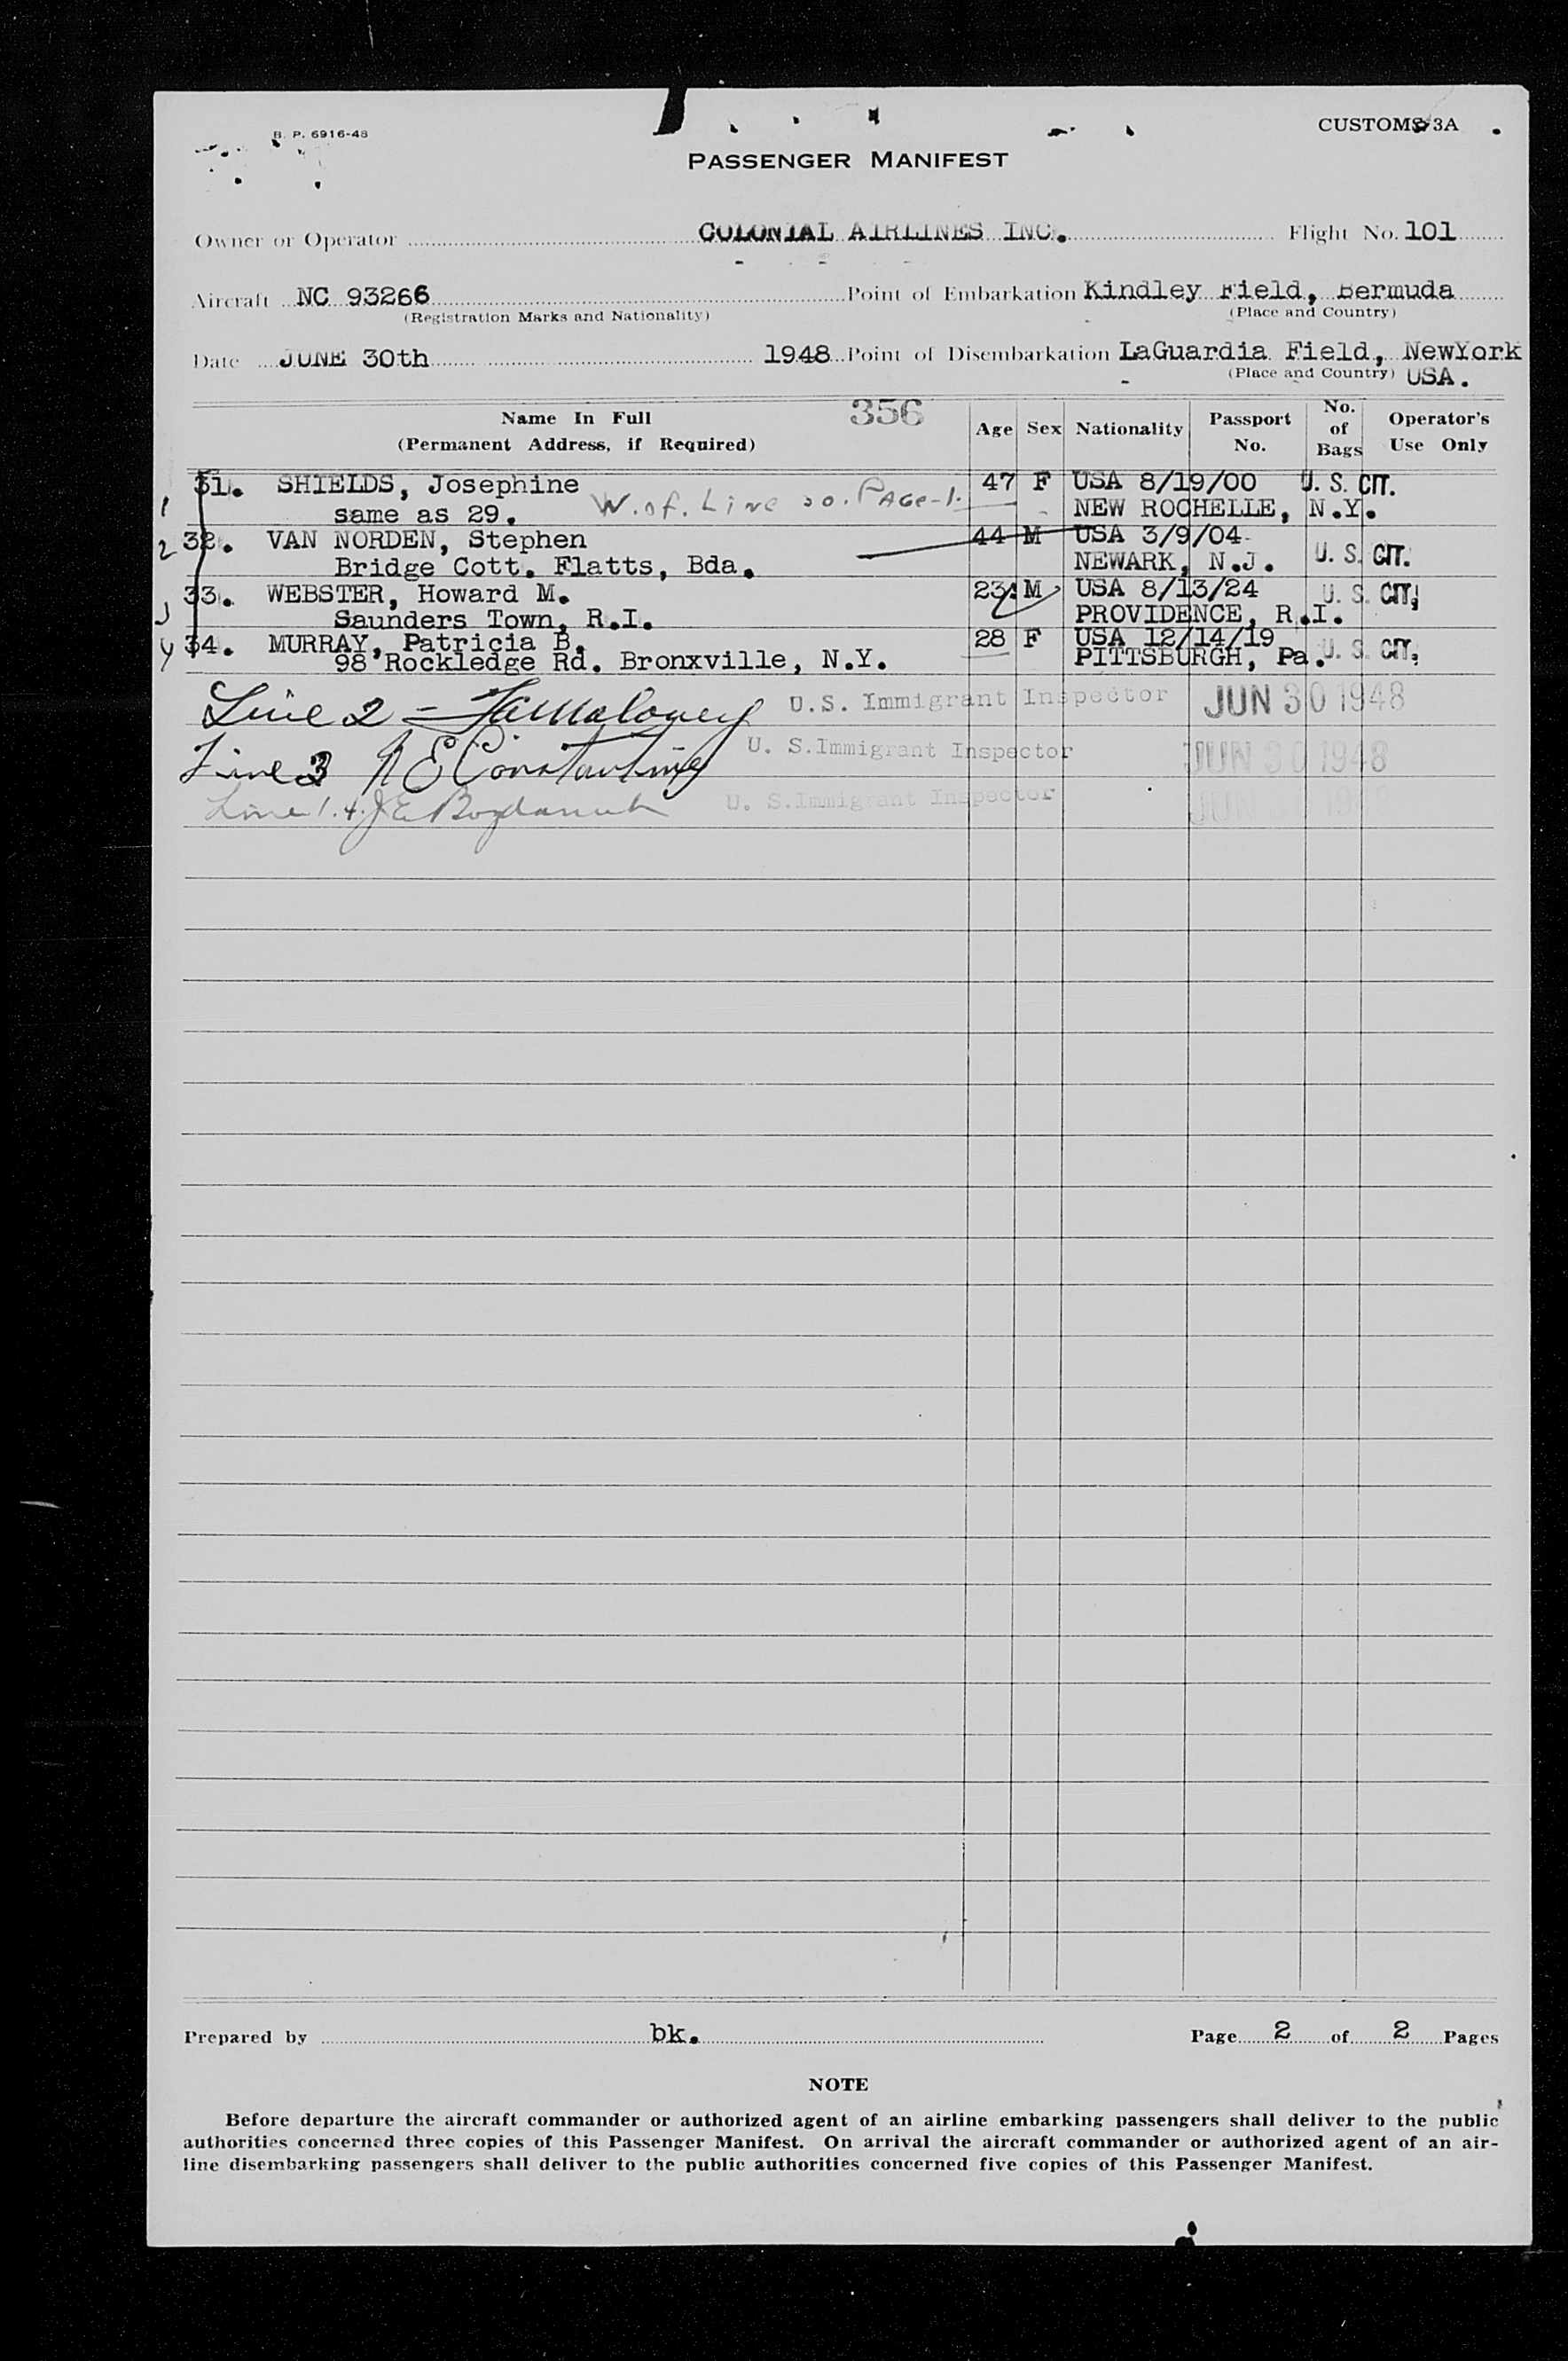 B. P. 6916-48
CUSTOMS 3A
PASSENGER MANIFEST
Owner or Operator COLONIAL AIRLINES INC. Flight No. 101
Aircraft NC 93266 Point of Embarkation Kindley Field, Bermuda
(Registration Marks and Nationality) (Place and Country)
Date JUNE 30th 1948 Point of Disembarkation LaGuardia Field, NewYork
(Place and Country) USA.
356
Name In Full
(Permanent Address, if Required)
Age Sex Nationality Passport No. No. of Bags Operator's Use Only
1 31. SHIELDS, Josephine 47 F USA 8/19/00 U. S. CIT.
same as 29. W. of. Line 30. PAGe-1. NEW ROCHELLE, N.Y.
2 32. VAN NORDEN, Stephen 44 M USA 3/9/04
Bridge Cott. Flatts, Bda. NEWARK, N.J. U. S. CIT.
3 33. WEBSTER, Howard M. 23 M USA 8/13/24 U. S. CIT.
Saunders Town, R.I. PROVIDENCE, R.I.
4 34. MURRAY, Patricia B. 28 F USA 12/14/19
98 Rockledge Rd. Bronxville, N.Y. PITTSBURGH, Pa. U. S. CIT.
Line 2 = Maloney U.S. Immigrant Inspector JUN 30 1948
Line 3 R E Constantine U. S. Immigrant Inspector JUN 30 1948
Line 1. 4. J E U. S. Immigrant Inspector JUN 30 1948
Prepared by bk. Page 2 of 2 Pages
NOTE
Before departure the aircraft commander or authorized agent of an airline embarking passengers shall deliver to the public
authorities concerned three copies of this Passenger Manifest. On arrival the aircraft commander or authorized agent of an air-
line disembarking passengers shall deliver to the public authorities concerned five copies of this Passenger Manifest.